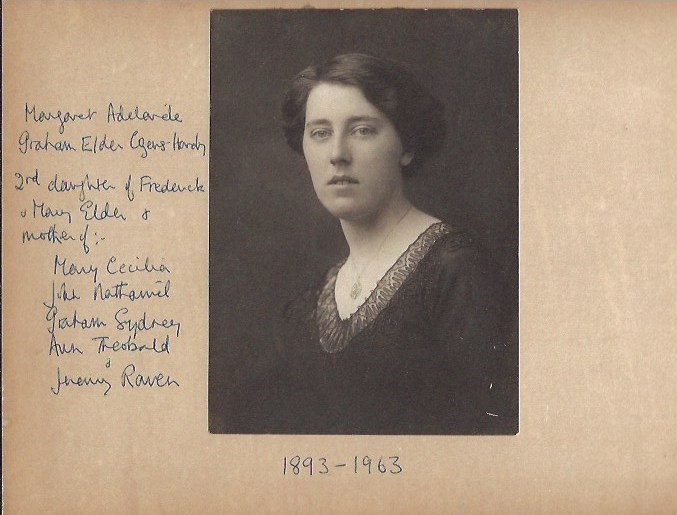 Margaret Adelaide
Graham Elder Cozens-Hardy
2nd daughter of Frederick
& Mary Elder &
mother of:-
Mary Cecilia
John Nathaniel
Graham Sydney
Ann Theobald
&
Jeremy Raven
1893-1963